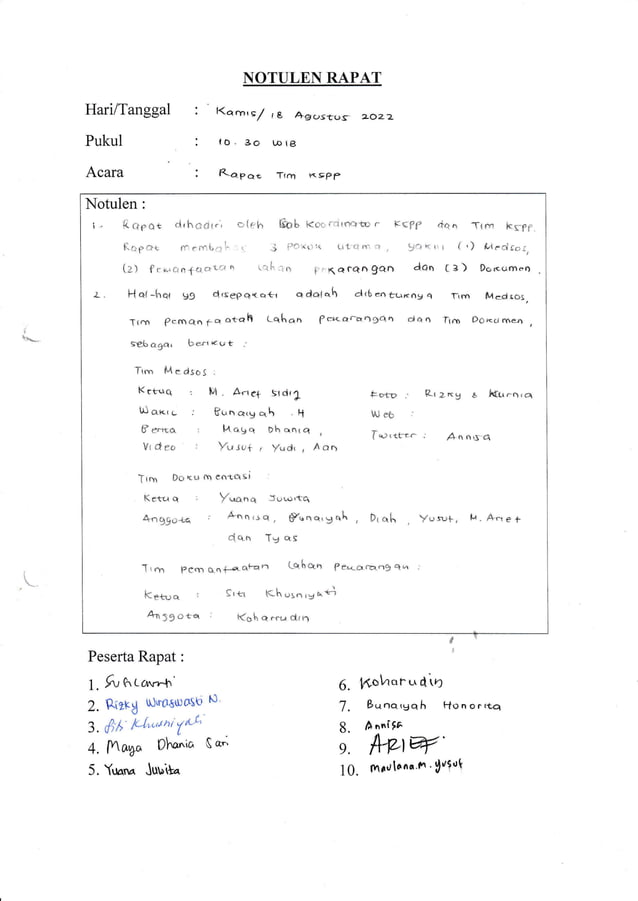 NOTULEN RAPAT
Hari/Tanggal : Kamis/ 18 Agustus 2022
Pukul : 10.30 WIB
Acara : Rapat Tim KSPP
Notulen :
1. Rapat dihadiri oleh Sob Koordinator KSPP dan Tim KSPP.
Rapat membahas 3 pokok utama, yakni (1) Medsos,
(2) Pemanfaatan lahan pekarangan dan (3) Dokumen.
2. Hal-hal yg disepakati adalah dibentuknya Tim Medsos,
Tim pemanfaatan Lahan pekarangan dan Tim Dokumen,
sebagai berikut :
Tim Medsos :
Ketua : M. Arief Sidiq Foto : Rizky & Kurnia
Wakil : Bunaiyah .H Web :
Berita : Maya Dhania, Twitter : Annisa
Video : Yusuf, Yudi, Aan
Tim Dokumentasi :
Ketua : Yuana Juwita
Anggota : Annisa, Bunaiyah, Diah, Yusuf, M. Arief
dan Tyas
Tim pemanfaatan Lahan Pekarangan :
Ketua : Siti Khusniyati
Anggota : Koharrudin
Peserta Rapat :
1.
2. Rizky Wiraswasti N.
3. Siti Khusniyati
4. Maya Dhania Sari
5. Yuana Juwita
6. Koharudin
7. Bunaiyah Honorita
8. Annisa
9. ARIEF
10. Maulana.M.Yusuf